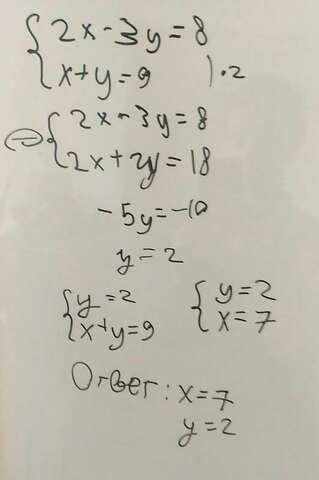 {2x-3y=8
x+y=9 )·2
⊖{2x-3y=8
2x+2y=18
-5y=-10
y=2
{y=2
x+y=9
{y=2
x=7
Ответ: x=7
y=2